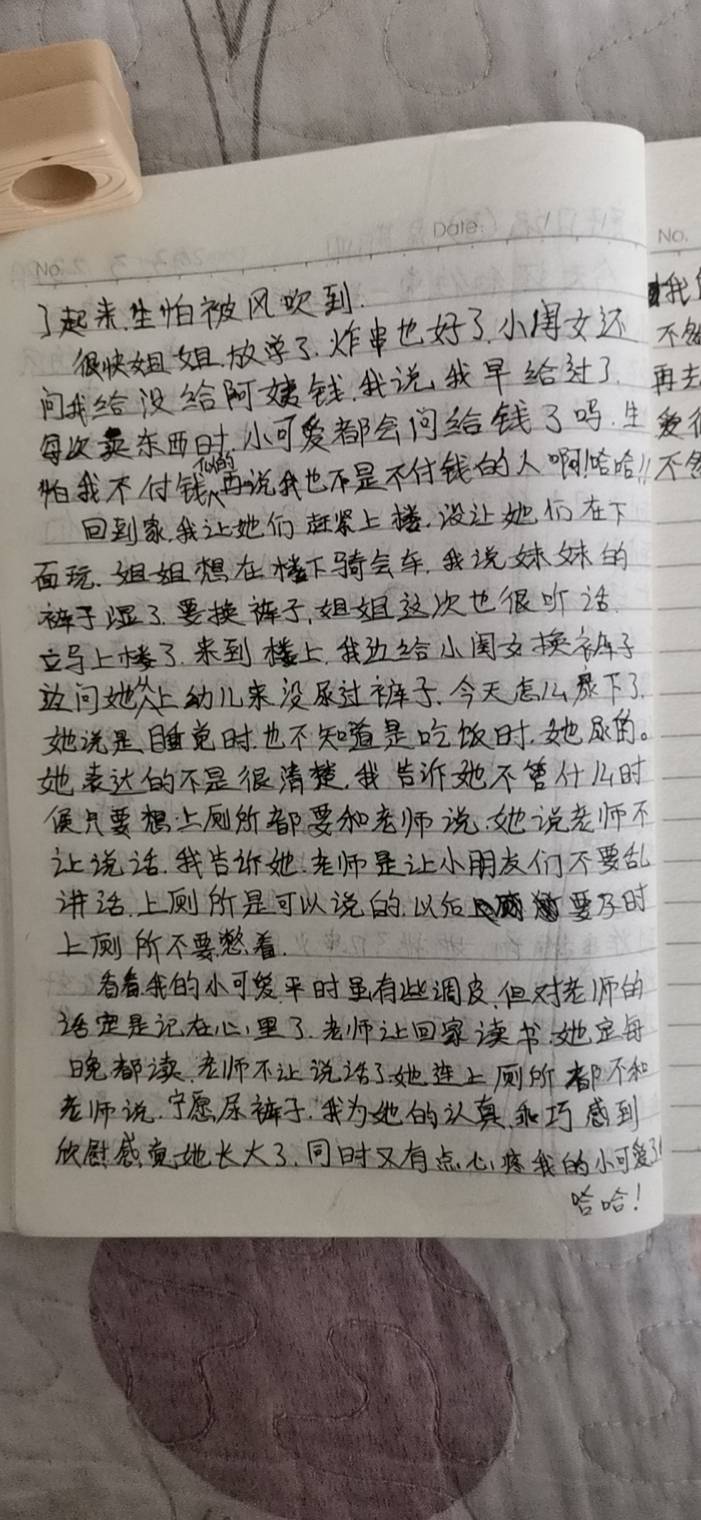 No.
Date. /
了起来,生怕被风吹到.
很快姐姐放学了.炸串也好了.小闺女还
问我给没给阿姨钱.我说我早给过了.
每次卖东西时,小可爱都会问给钱了吗.生
怕我不付钱似的再说我也不是不付钱的人啊!哈哈!!
回到家.我让她们赶紧上楼.没让她们在下
面玩.姐姐想在楼下骑会车.我说妹妹的
裤子湿了.要换裤子,姐姐这次也很听话.
立马上楼了.来到楼上.我边给小闺女换裤子
边问她从上幼儿来没尿过裤子.今天怎么尿下了.
她说是睡觉时.也不知道是吃饭时.她尿的。
她表达的不是很清楚.我告诉她不管什么时
候只要想上厕所都要和老师说.她说老师不
让说话.我告诉她.老师是让小朋友们不要乱
讲话.上厕所是可以说的.以后要及时
上厕所不要憋着.
看看我的小可爱.平时虽有些调皮.但对老师的
话定是记在心里了.老师让回家读书.她定每
晚都读.老师不让说话了.她连上厕所都不和
老师说.宁愿尿裤子.我为她的认真.乖巧感到
欣慰感觉她长大了.同时又有点心疼我的小可爱了!
哈哈!
No.
我
不
再去
爱
不